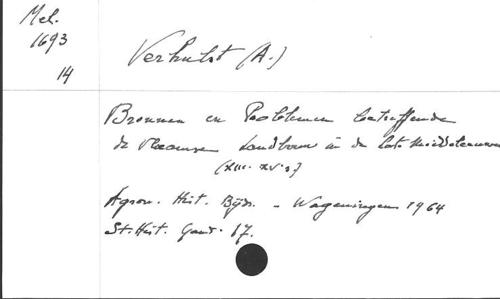 Mel.
1693
14
Verhulst (A.)
Bronnen en Problemen betreffende
de Vlaamse Landbouw in de late Middeleeuwen
(XIII-XV e)
Agron. Hist. Bijdr. - Wageningen 1964
St. Hist. Gand. 17.